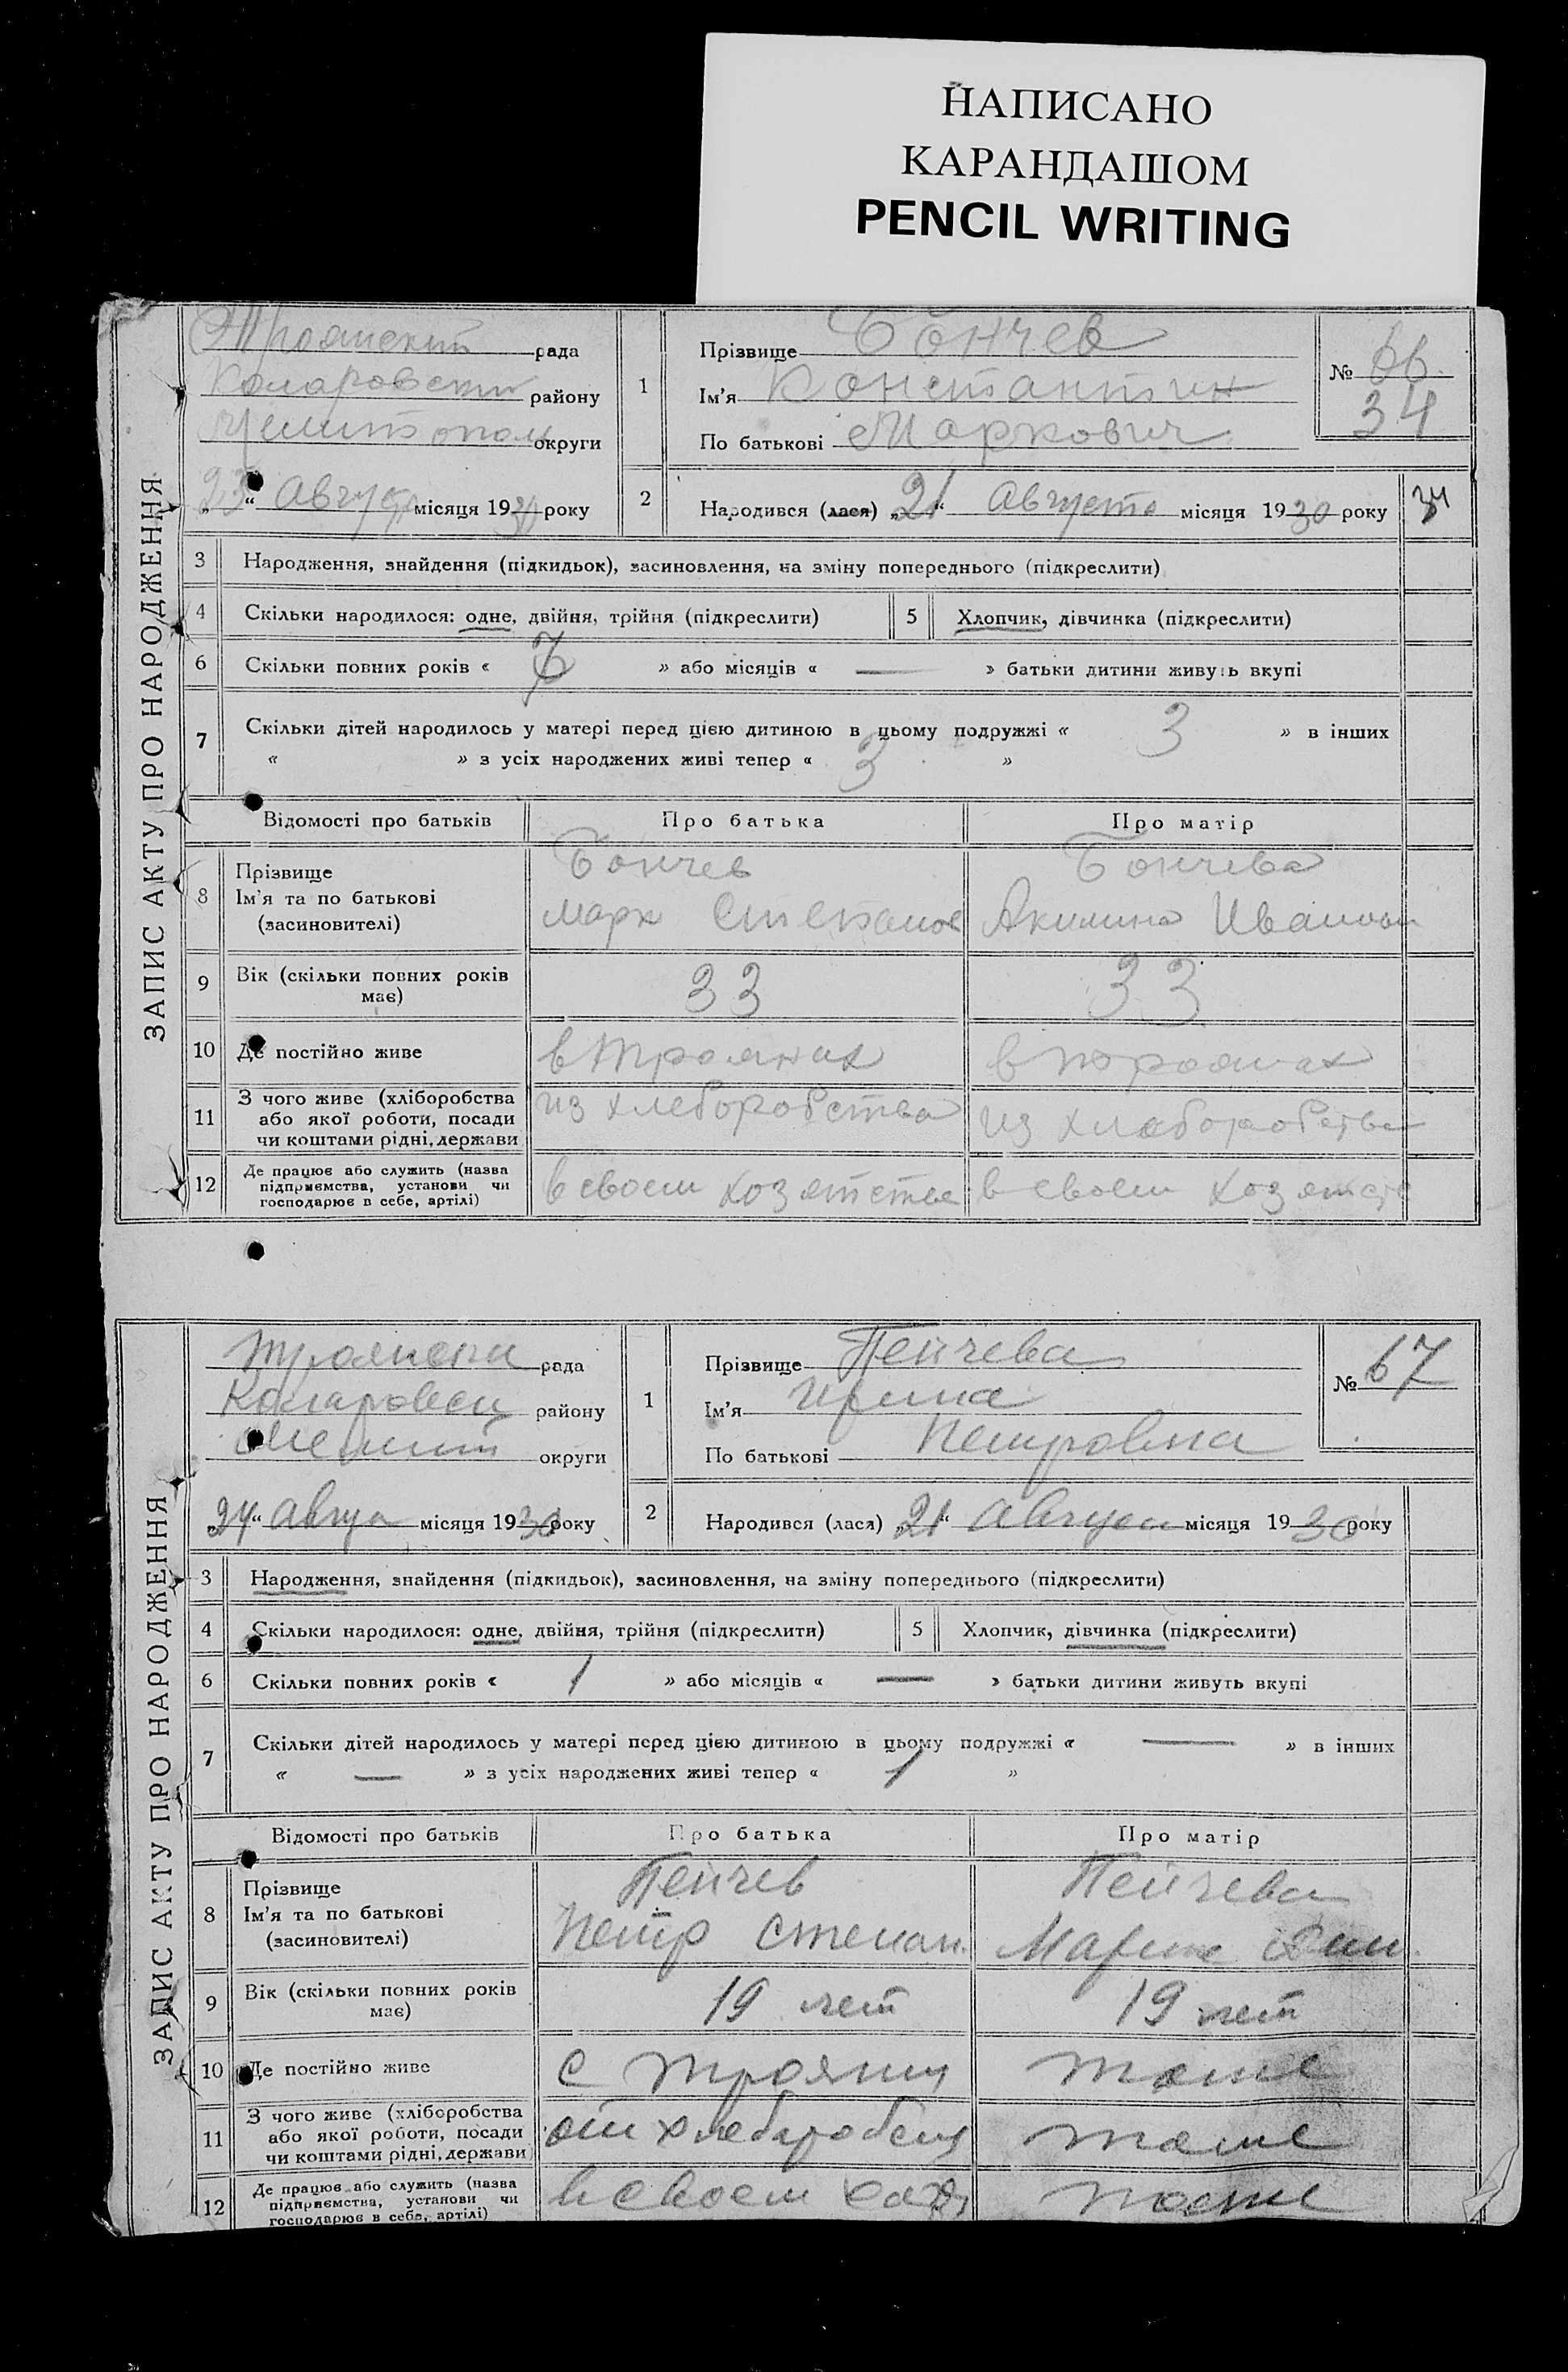 НАПИСАНО
КАРАНДАШОМ
PENCIL WRITING
ЗАПИС АКТУ ПРО НАРОДЖЕННЯ
Троянский рада
Коларовский району
Мелитопол округи
„23“ Август місяця 1930 року
1
Прізвище Бончев
Ім'я Константин
По батькові Маркович
№ 66
34
2
Народився (лася) „21“ Августа місяця 1930 року
34
3 Народження, знайдення (підкидьок), засиновлення, на зміну попереднього (підкреслити)
4 Скільки народилося: одне, двійня, трійня (підкреслити) 5 Хлопчик, дівчинка (підкреслити)
6 Скільки повних років « 7 » або місяців « — » батьки дитини живуть вкупі
7 Скільки дітей народилось у матері перед цією дитиною в цьому подружжі « 3 » в інших
« » з усіх народжених живі тепер « 3 »
Відомості про батьків Про батька Про матір
8 Прізвище Бончев Бончева
Ім'я та по батькові Марк Степанов Акилина Иванов
(засиновителі)
9 Вік (скільки повних років має) 33 33
10 Де постійно живе в Троянах в Троянах
11 З чого живе (хліборобства або якої роботи, посади чи коштами рідні, держави из хлеборобства из хлеборобства
12 Де працює або служить (назва підприємства, установи чи господарює в себе, артілі) в своем хозятстве в своем хозятств
ЗАПИС АКТУ ПРО НАРОДЖЕННЯ
Троянски рада
Коларовск району
Мелит округи
„24“ Авгус місяця 1930 року
1
Прізвище Пейчева
Ім'я Ирина
По батькові Петровна
№ 67
2
Народився (лася) „21“ Августа місяця 1930 року
3 Народження, знайдення (підкидьок), засиновлення, на зміну попереднього (підкреслити)
4 Скільки народилося: одне, двійня, трійня (підкреслити) 5 Хлопчик, дівчинка (підкреслити)
6 Скільки повних років « 1 » або місяців « — » батьки дитини живуть вкупі
7 Скільки дітей народилось у матері перед цією дитиною в цьому подружжі « — » в інших
« — » з усіх народжених живі тепер « 1 »
Відомості про батьків Про батька Про матір
8 Прізвище Пейчев Пейчева
Ім'я та по батькові Петр Степан. Марие
(засиновителі)
9 Вік (скільки повних років має) 19 лет 19 лет
10 Де постійно живе с Трояны тоже
11 З чого живе (хліборобства або якої роботи, посади чи коштами рідні, держави от хлеборобст тоже
12 Де працює або служить (назва підприємства, установи чи господарює в себе, артілі) в своем тоже